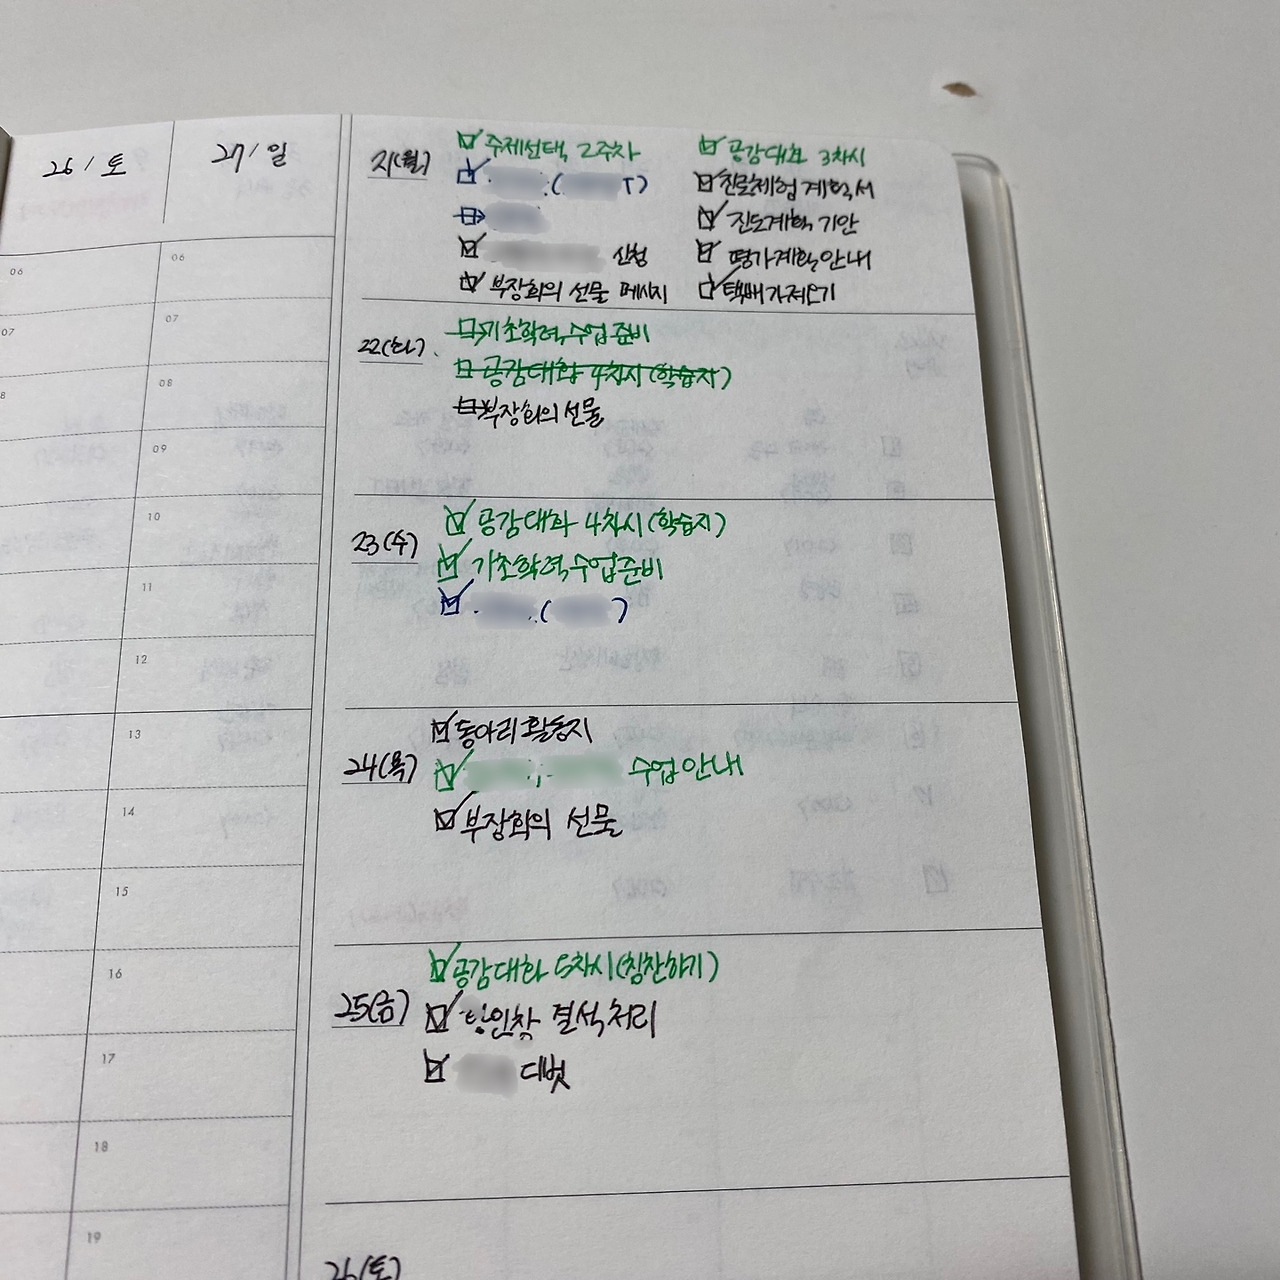 26 / 토
27 / 일
06
07
8
06
07
08
09
10
11
12
13
14
15
16
17
18
19
21(월)
주제선택 2주차
( T)
신청
부장회의 선물 메시지
공감대화 3차시
진로체험 계획서
진도계획 기안
평가계획 안내
택배 가져오기
22(화)
기초학력 수업 준비
공감대화 4차시 (학습지)
부장회의 선물
23(수)
공감대화 4차시 (학습지)
기초학력 수업준비
( )
24(목)
동아리 활동지
수업 안내
부장회의 선물
25(금)
공감대화 5차시 (칭찬하기)
결석 처리
디벗
26(토)